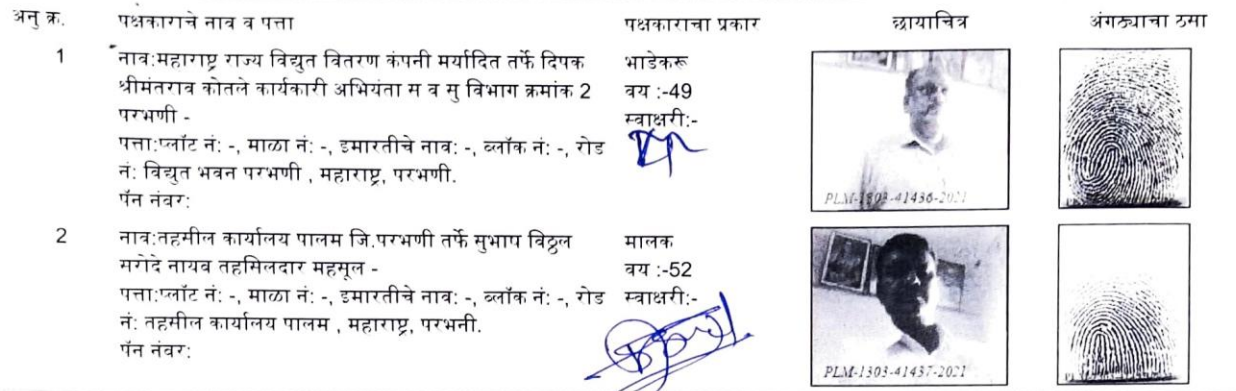 अनु क्र. पक्षकाराचे नाव व पत्ता पक्षकाराचा प्रकार छायाचित्र अंगठ्याचा ठसा
1 नाव:महाराष्ट्र राज्य विद्युत वितरण कंपनी मर्यादित तर्फे दिपक भाडेकरू
श्रीमंतराव कोतले कार्यकारी अभियंता स व सु विभाग क्रमांक 2 वय :-49
परभणी - स्वाक्षरी:-
पत्ता:प्लॉट नं: -, माळा नं: -, इमारतीचे नाव: -, ब्लॉक नं: -, रोड
नं: विद्युत भवन परभणी , महाराष्ट्र, परभणी.
पॅन नंबर:
PLM-1303-41436-2021
2 नाव:तहसील कार्यालय पालम जि.परभणी तर्फे सुभाष विठ्ठल मालक
सरोदे नायब तहसिलदार महसूल - वय :-52
पत्ता:प्लॉट नं: -, माळा नं: -, इमारतीचे नाव: -, ब्लॉक नं: -, रोड स्वाक्षरी:-
नं: तहसील कार्यालय पालम , महाराष्ट्र, परभनी.
पॅन नंबर:
PLM-1303-41437-2021